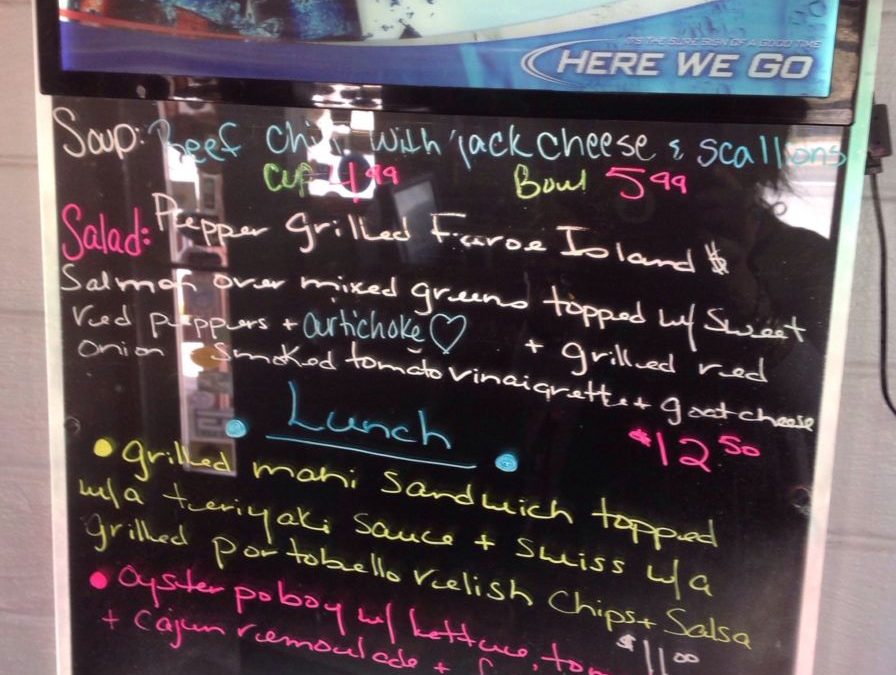 IT'S THE SURE SIGN OF A GOOD TIME
HERE WE GO
Soup: Beef Chili with jack cheese & scallions
Cup 4.99 Bowl 5.99
Salad: Pepper grilled Faroe Island $
Salmon over mixed greens topped w/ Sweet
red peppers + artichoke ♡ + grilled red
onion smoked tomato vinaigrette + goat cheese
$12.50
• Lunch •
• grilled mahi sandwich topped
w/a teriyaki sauce + swiss w/a
grilled portobello relish Chips + Salsa
$11.00
• Oyster poboy w/ lettuce,
+ Cajun remoulade +